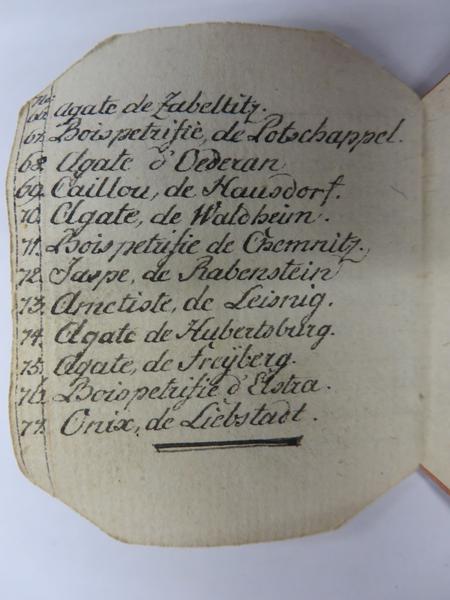 No
66. Agate de Zabeltitz.
67. Bois petrifiè, de Potschappel.
68. Agate d'Oederan,
69. Caillou, de Hausdorf.
70. Agate, de Waldheim.
71. Bois petrifie de Chemnitz,
72. Jaspe, de Rabenstein
73. Ametiste, de Leisnig.
74. Agate de Hubertsburg.
75. Agate, de Freÿberg.
76. Bois petrifie d'Elstra.
77. Onix, de Liebstadt.